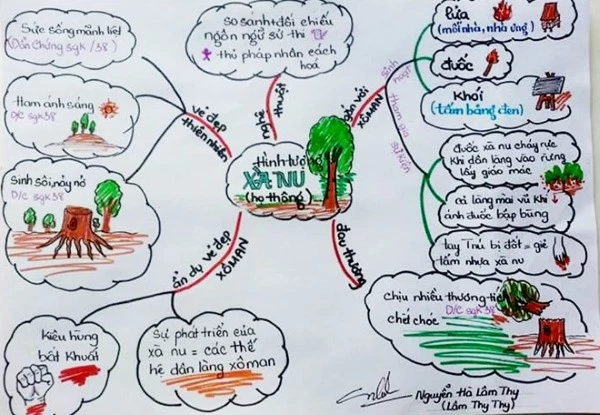 Sức sống mãnh liệt
(Dẫn chứng sgk/38)
Ham ánh sáng
D/c sgk38
Sinh sôi, nảy nở
D/c sgk 38
vẻ đẹp
thiên nhiên
so sánh + đối chiếu
ngôn ngữ sử thi
thủ pháp nhân cách
hoá
nghệ
thuật
Hình tượng
XÀ NU
(họ thông)
gắn với
XÔMAN
sinh
hoạt
tham gia
sự kiện
lửa
(mỗi nhà, nhà ưng)
đuốc
Khói
(tấm bảng đen)
đuốc xà nu cháy rực
Khi dân làng vào rừng
lấy giáo mác
cả làng múa vũ Khi
ánh đuốc bập bùng
tay Tnú bị đốt = giẻ
tẩm nhựa xà nu
đau thương
chịu nhiều thương tích
D/c sgk38
chết chóc
ẩn dụ vẻ đẹp
XÔMAN
Kiêu hùng
bất Khuất
Sự phát triển của
xà nu = các thế
hệ dân làng xôman
Nguyễn Hà Lâm Thy
(Lâm Thy Thy)